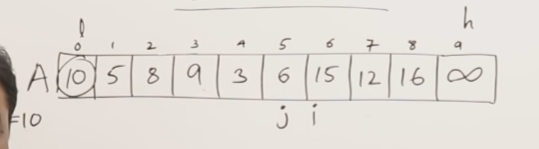 l h
0 1 2 3 4 5 6 7 8 9
A 10 5 8 9 3 6 15 12 16 ∞
=10 j i